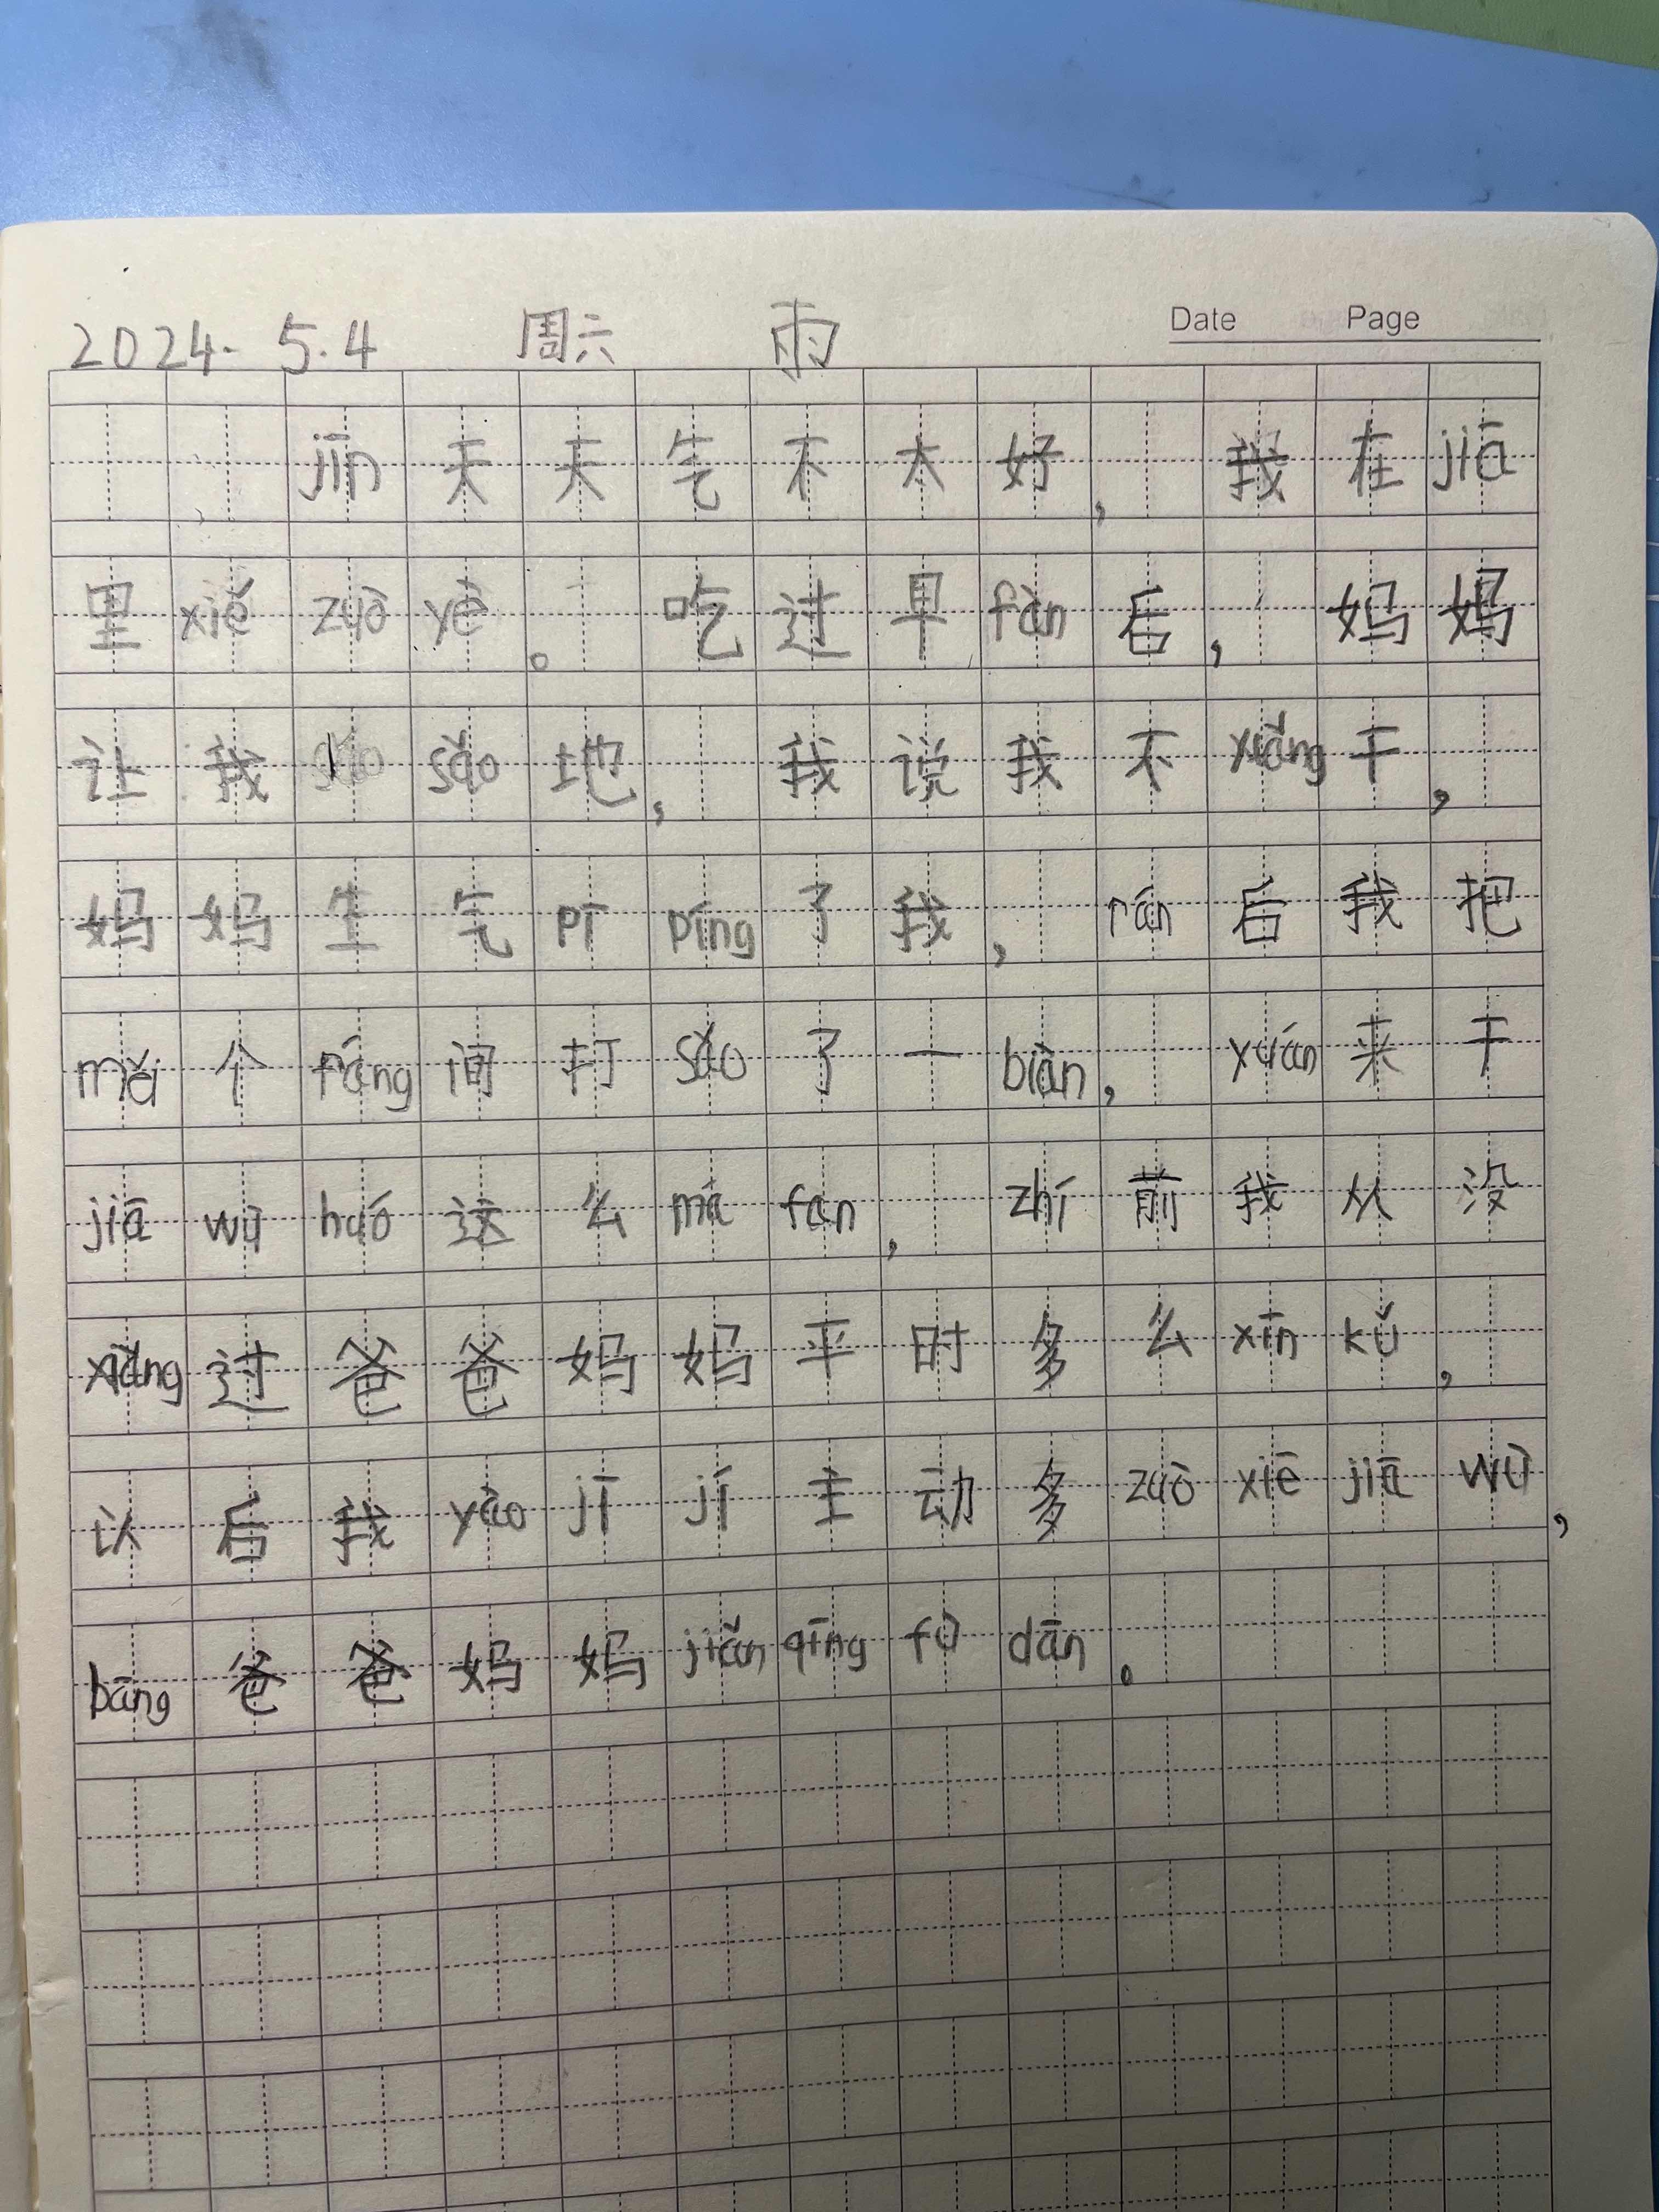 Date Page
2024. 5.4 周六 雨
jīn天天气不太好，我在jiā
里xiě zuò yè。吃过早fàn后，妈妈
让我sǎo地，我说我不xiǎng干，
妈妈生气pī píng了我，rán后我把
měi个fáng间打sǎo了一biàn，yuán来干
jiā wù huó这么má fan，zhí前我从没
xiǎng过爸爸妈妈平时多么xīn kǔ，
以后我yào jī jí主动多zuò xiē jiā wù，
bāng爸爸妈妈jiǎn qīng fù dān。